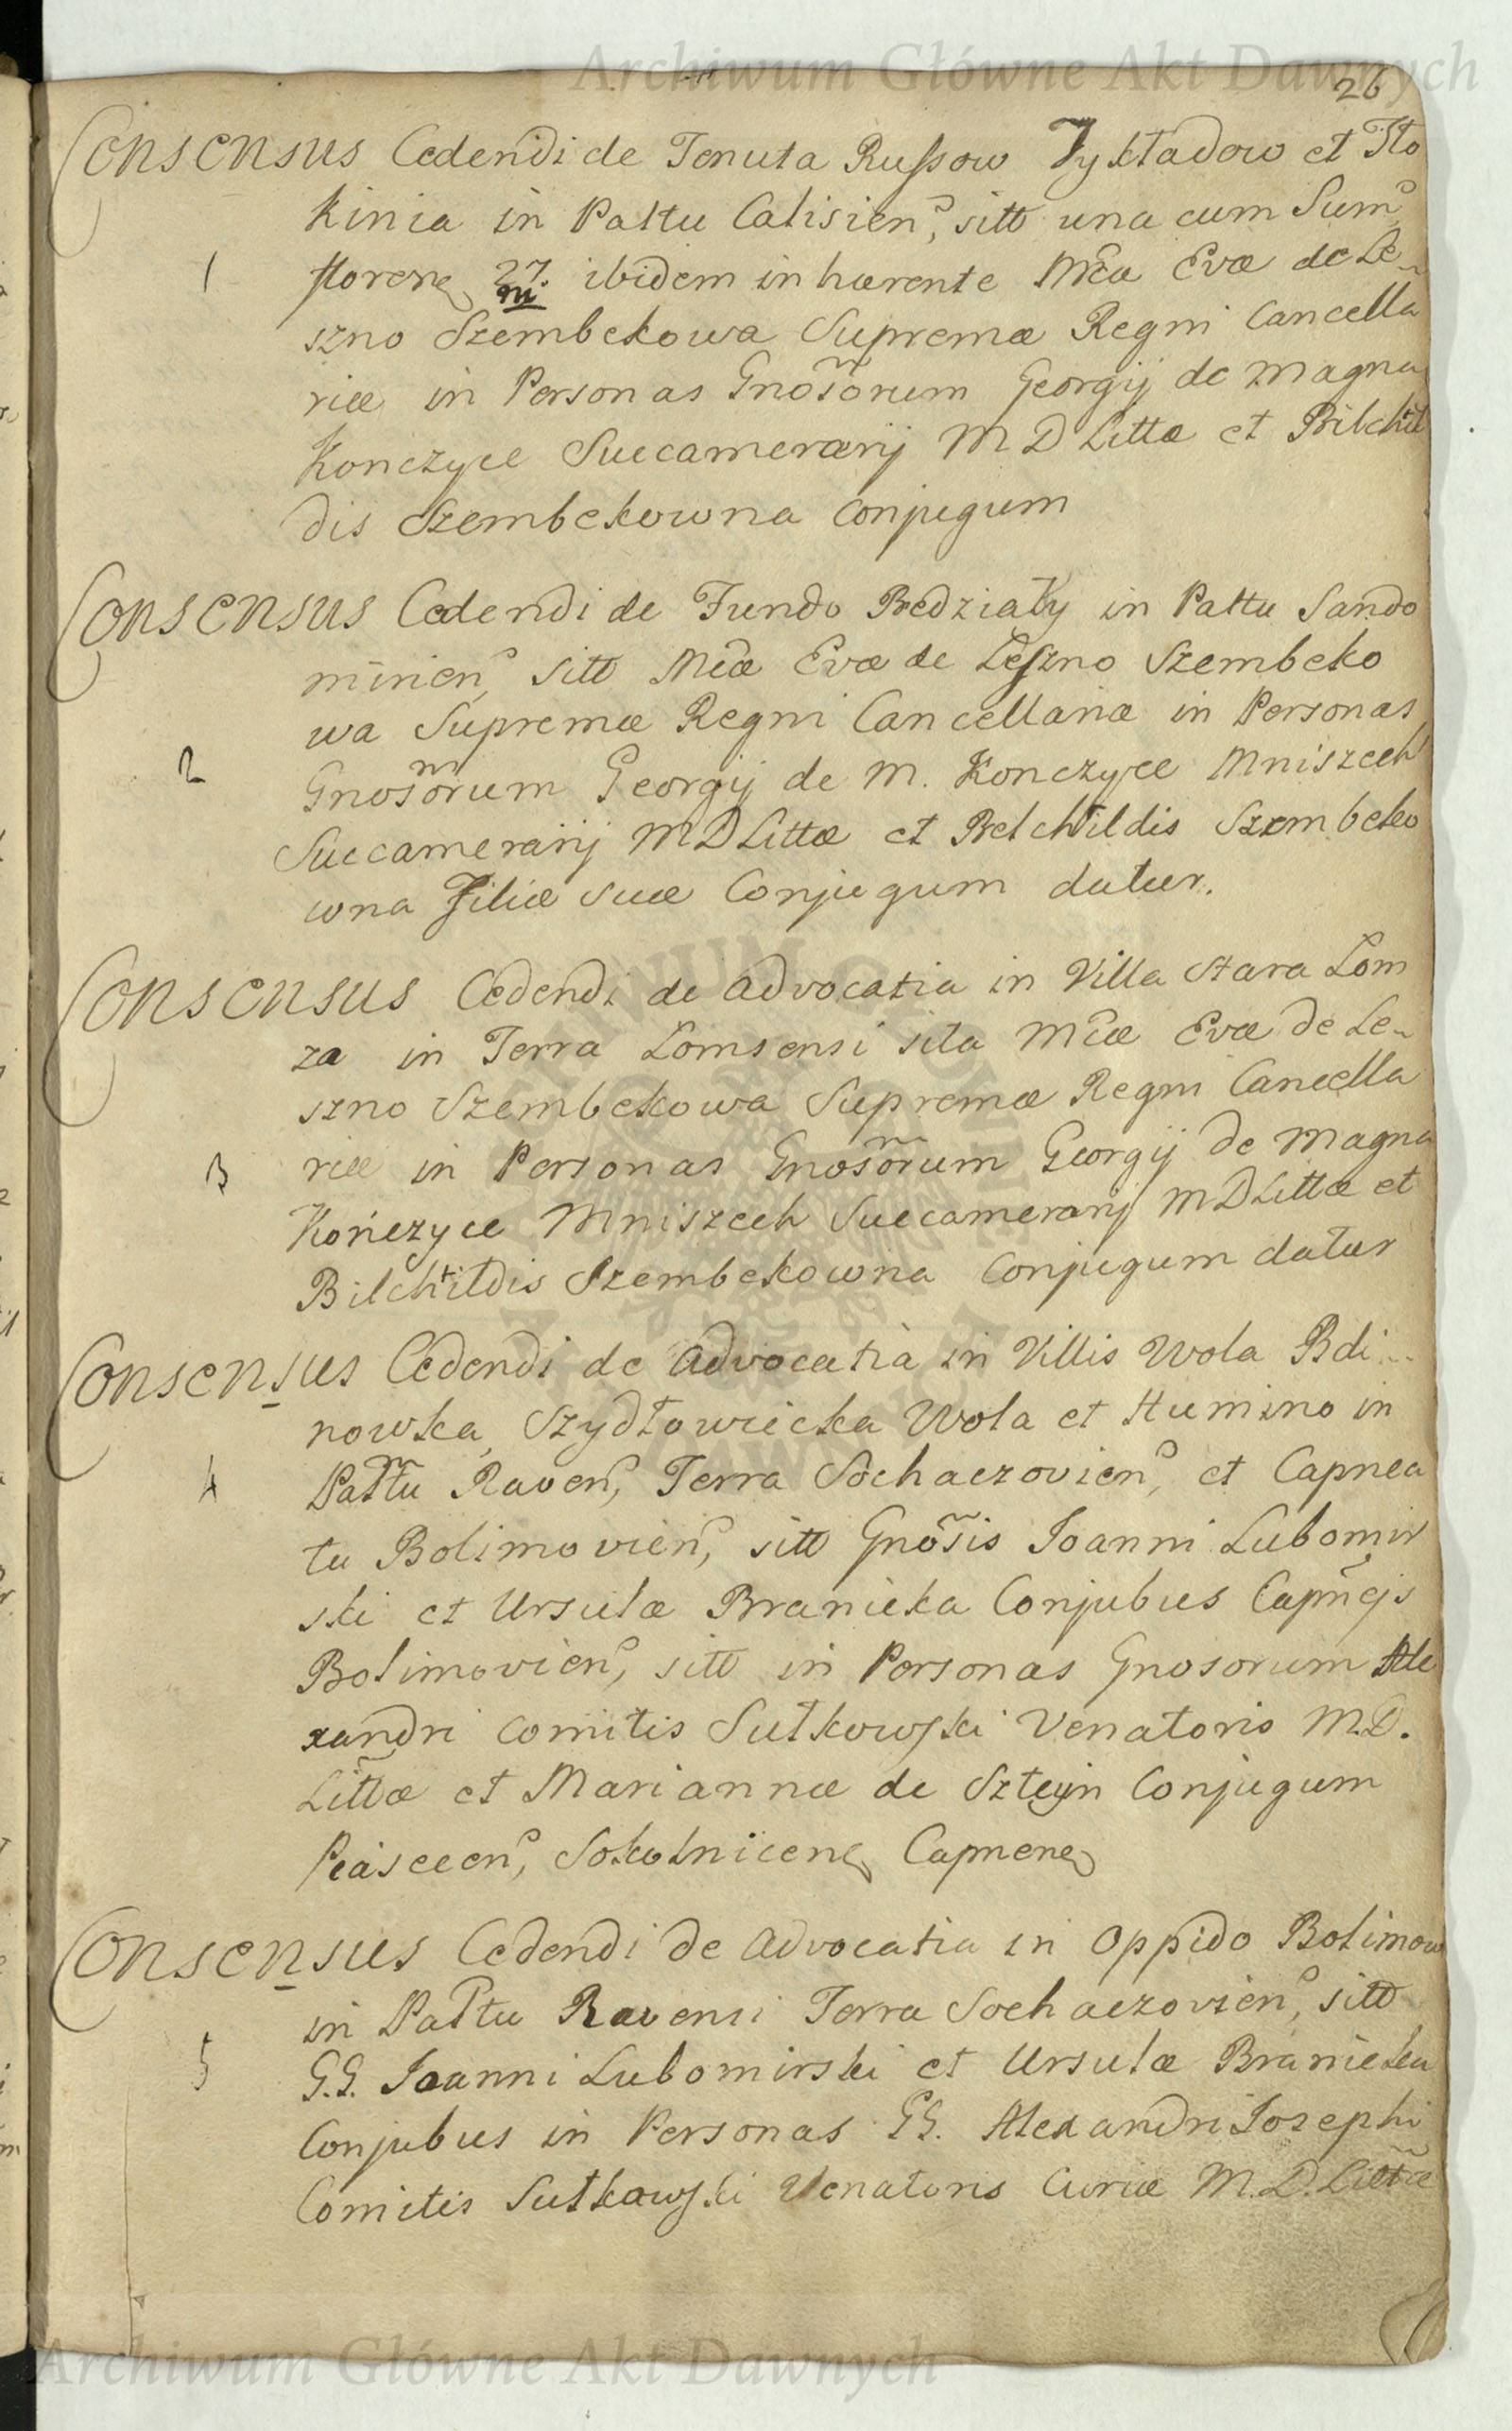 Archiwum Główne Akt Dawnych
26
Consensus Cedendi de Tenuta Russow Tykładow et Tło
kinia in Palttu Calisien, sitt una cum Sum
1 floren 27. ibidem inhærente Mcæ Evæ de Le-
m
szno Szembekowa Supremæ Regni Cancella
riæ in Personas Gnosorum Georgij de Magna
Konczyce Succamerarij M D Littæ et Bilchil
dis Szembekowna Conjugum
Consensus Cedendi de Fundo Bedziały in Palttu Sando
mirien, sitt Mcæ Evæ de Leszno Szembeko
wa Supremæ Regni Cancellariæ in Personas
2 Gnosorum Georgij de M. Konczyce Mniszech
Succamerarij M D Littæ et Belchildis Szembeko
wna Filiæ suæ Conjugum datur.
Consensus Cedendi de Advocatia in Villa Stara Lom
za in Terra Lomsensi sita Mcæ Evæ de Le-
szno Szembekowa Supremæ Regni Cancella
3 riæ in Personas Gnosorum Georgij de Magna
Kończyce Mniszech Succamerarij M D Littæ et
Bilchildis Szembekowna Conjugum datur
Consensus Cedendi de Advocatia in Villis Wola Bdi..
nowska, Szydłowiecka Wola et Humino in
4 Palttu Raven, Terra Sochaczovien, et Capnea
tu Bolimovien, sitt Gnosis Joanni Lubomir
ski et Ursulæ Branicka Conjubus Capnejs
Bolimovien, sitt in Personas Gnosorum Ale
xandri Comitis Sułkowski Venatoris M.D.
Littæ et Mariannæ de Szteyn Conjugum
Piaseen, Sokolnicen Capnen
Consensus Cedendi de Advocatia in Oppido Bolimow
in Palttu Ravensi Terra Sochaczovien, sitt
5 G.G. Joanni Lubomirski et Ursulæ Branicka
Conjubus in Personas GG. Alexandri Josephi
Comitis Sułkowski Venatoris Curiæ M.D. Littæ
Archiwum Główne Akt Dawnych